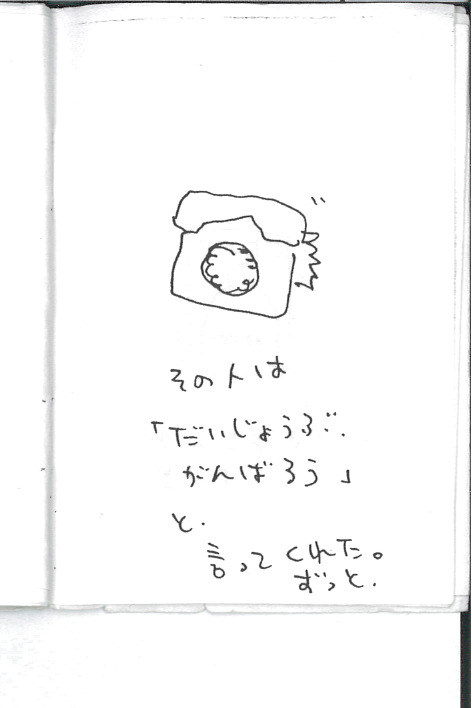 その人は
「だいじょうぶ.
がんばろう」
と.
言ってくれた。
ずっと.